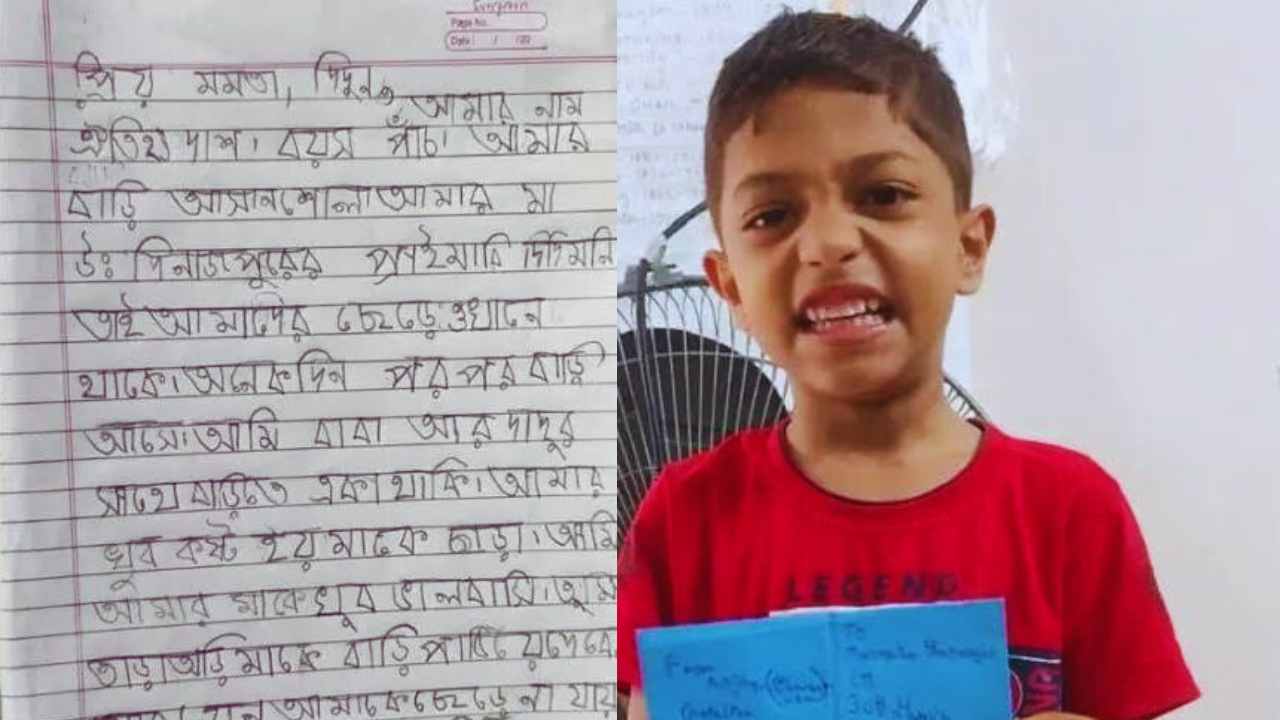 Page No.
Date / /20
প্রিয় মমতা, দিদুন,
আমার নাম
ঐতিহ্য দাশ। বয়স পাঁচ। আমার
বাড়ি আসানশোল। আমার মা
উঃ দিনাজপুরের প্রাইমারি দিদিমনি
তাই আমাদের ছেড়ে ওখানে
থাকে। অনেকদিন পর পর বাড়ি
আসে। আমি বাবা আর দাদুর
সাথে বাড়িতে একা থাকি। আমার
খুব কষ্ট হয় মাকে ছাড়া। আমি
আমার মাকে খুব ভালবাসি। তুমি
তাড়াতাড়ি মাকে বাড়ি পাঠিয়ে দেবে
আমাকে ছেড়ে না যায়
LEGEND
From
To